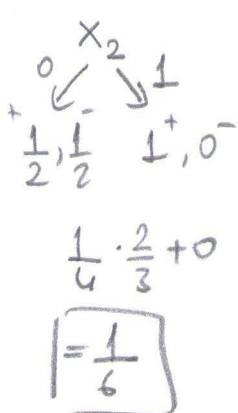 X₂
0 1
+ -
1/2, 1/2 1⁺, 0⁻
1/4 · 2/3 + 0
= 1/6